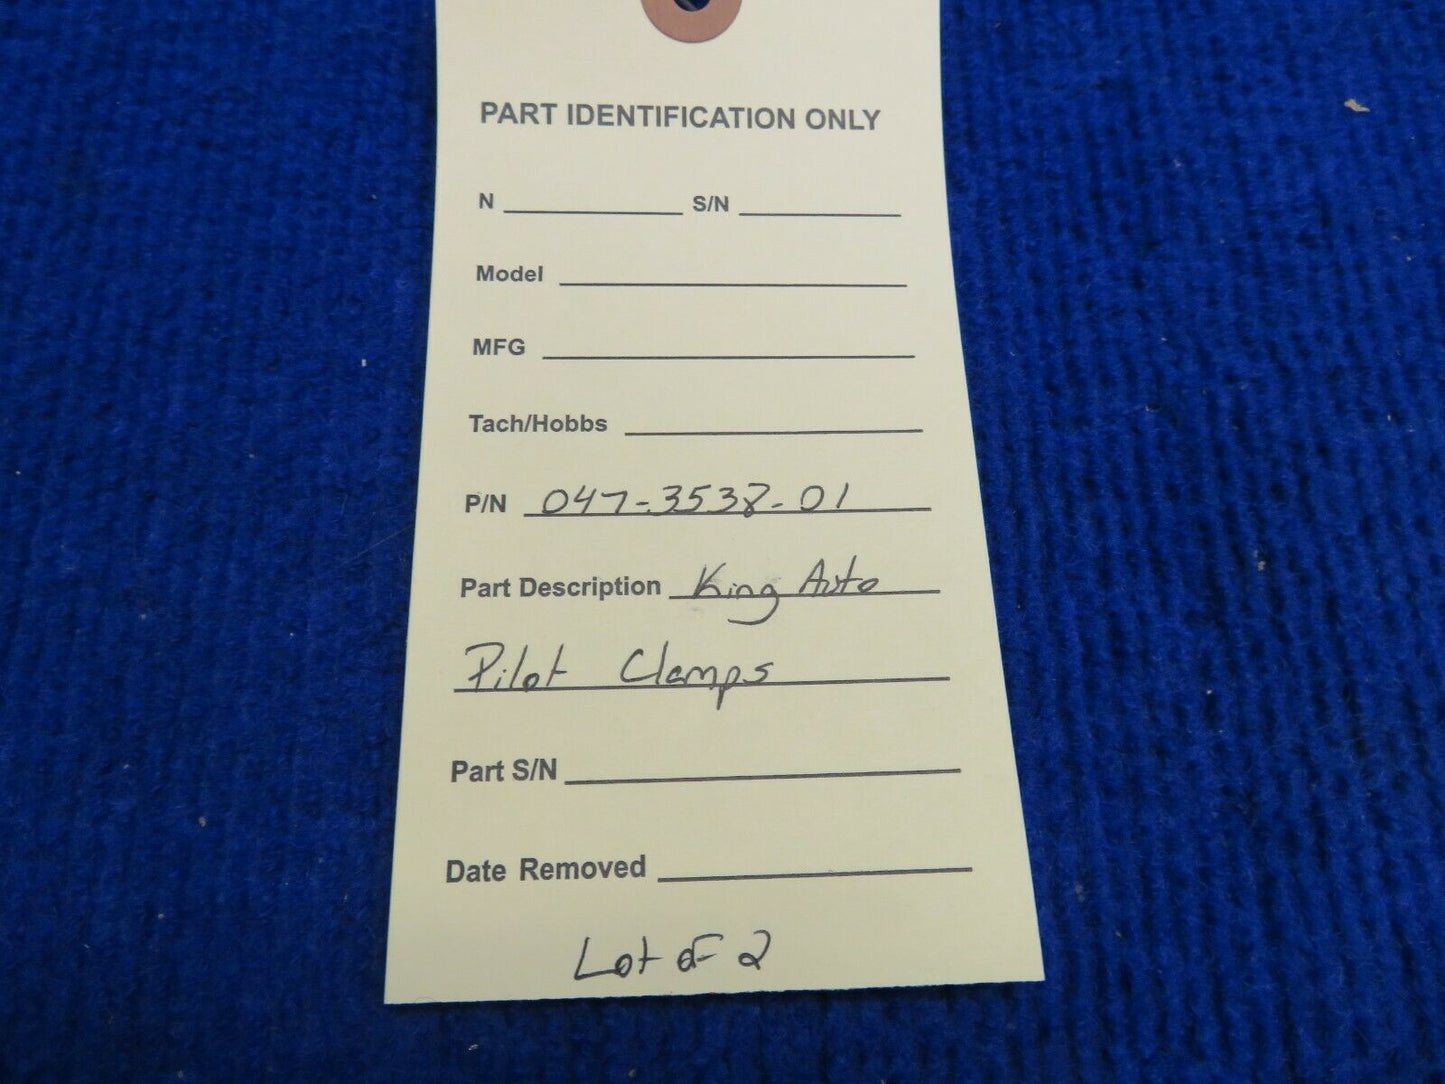 PART IDENTIFICATION ONLY
N S/N
Model
MFG
Tach/Hobbs
P/N 047-3538-01
Part Description King Auto
Pilot Clamps
Part S/N
Date Removed
Lot of 2